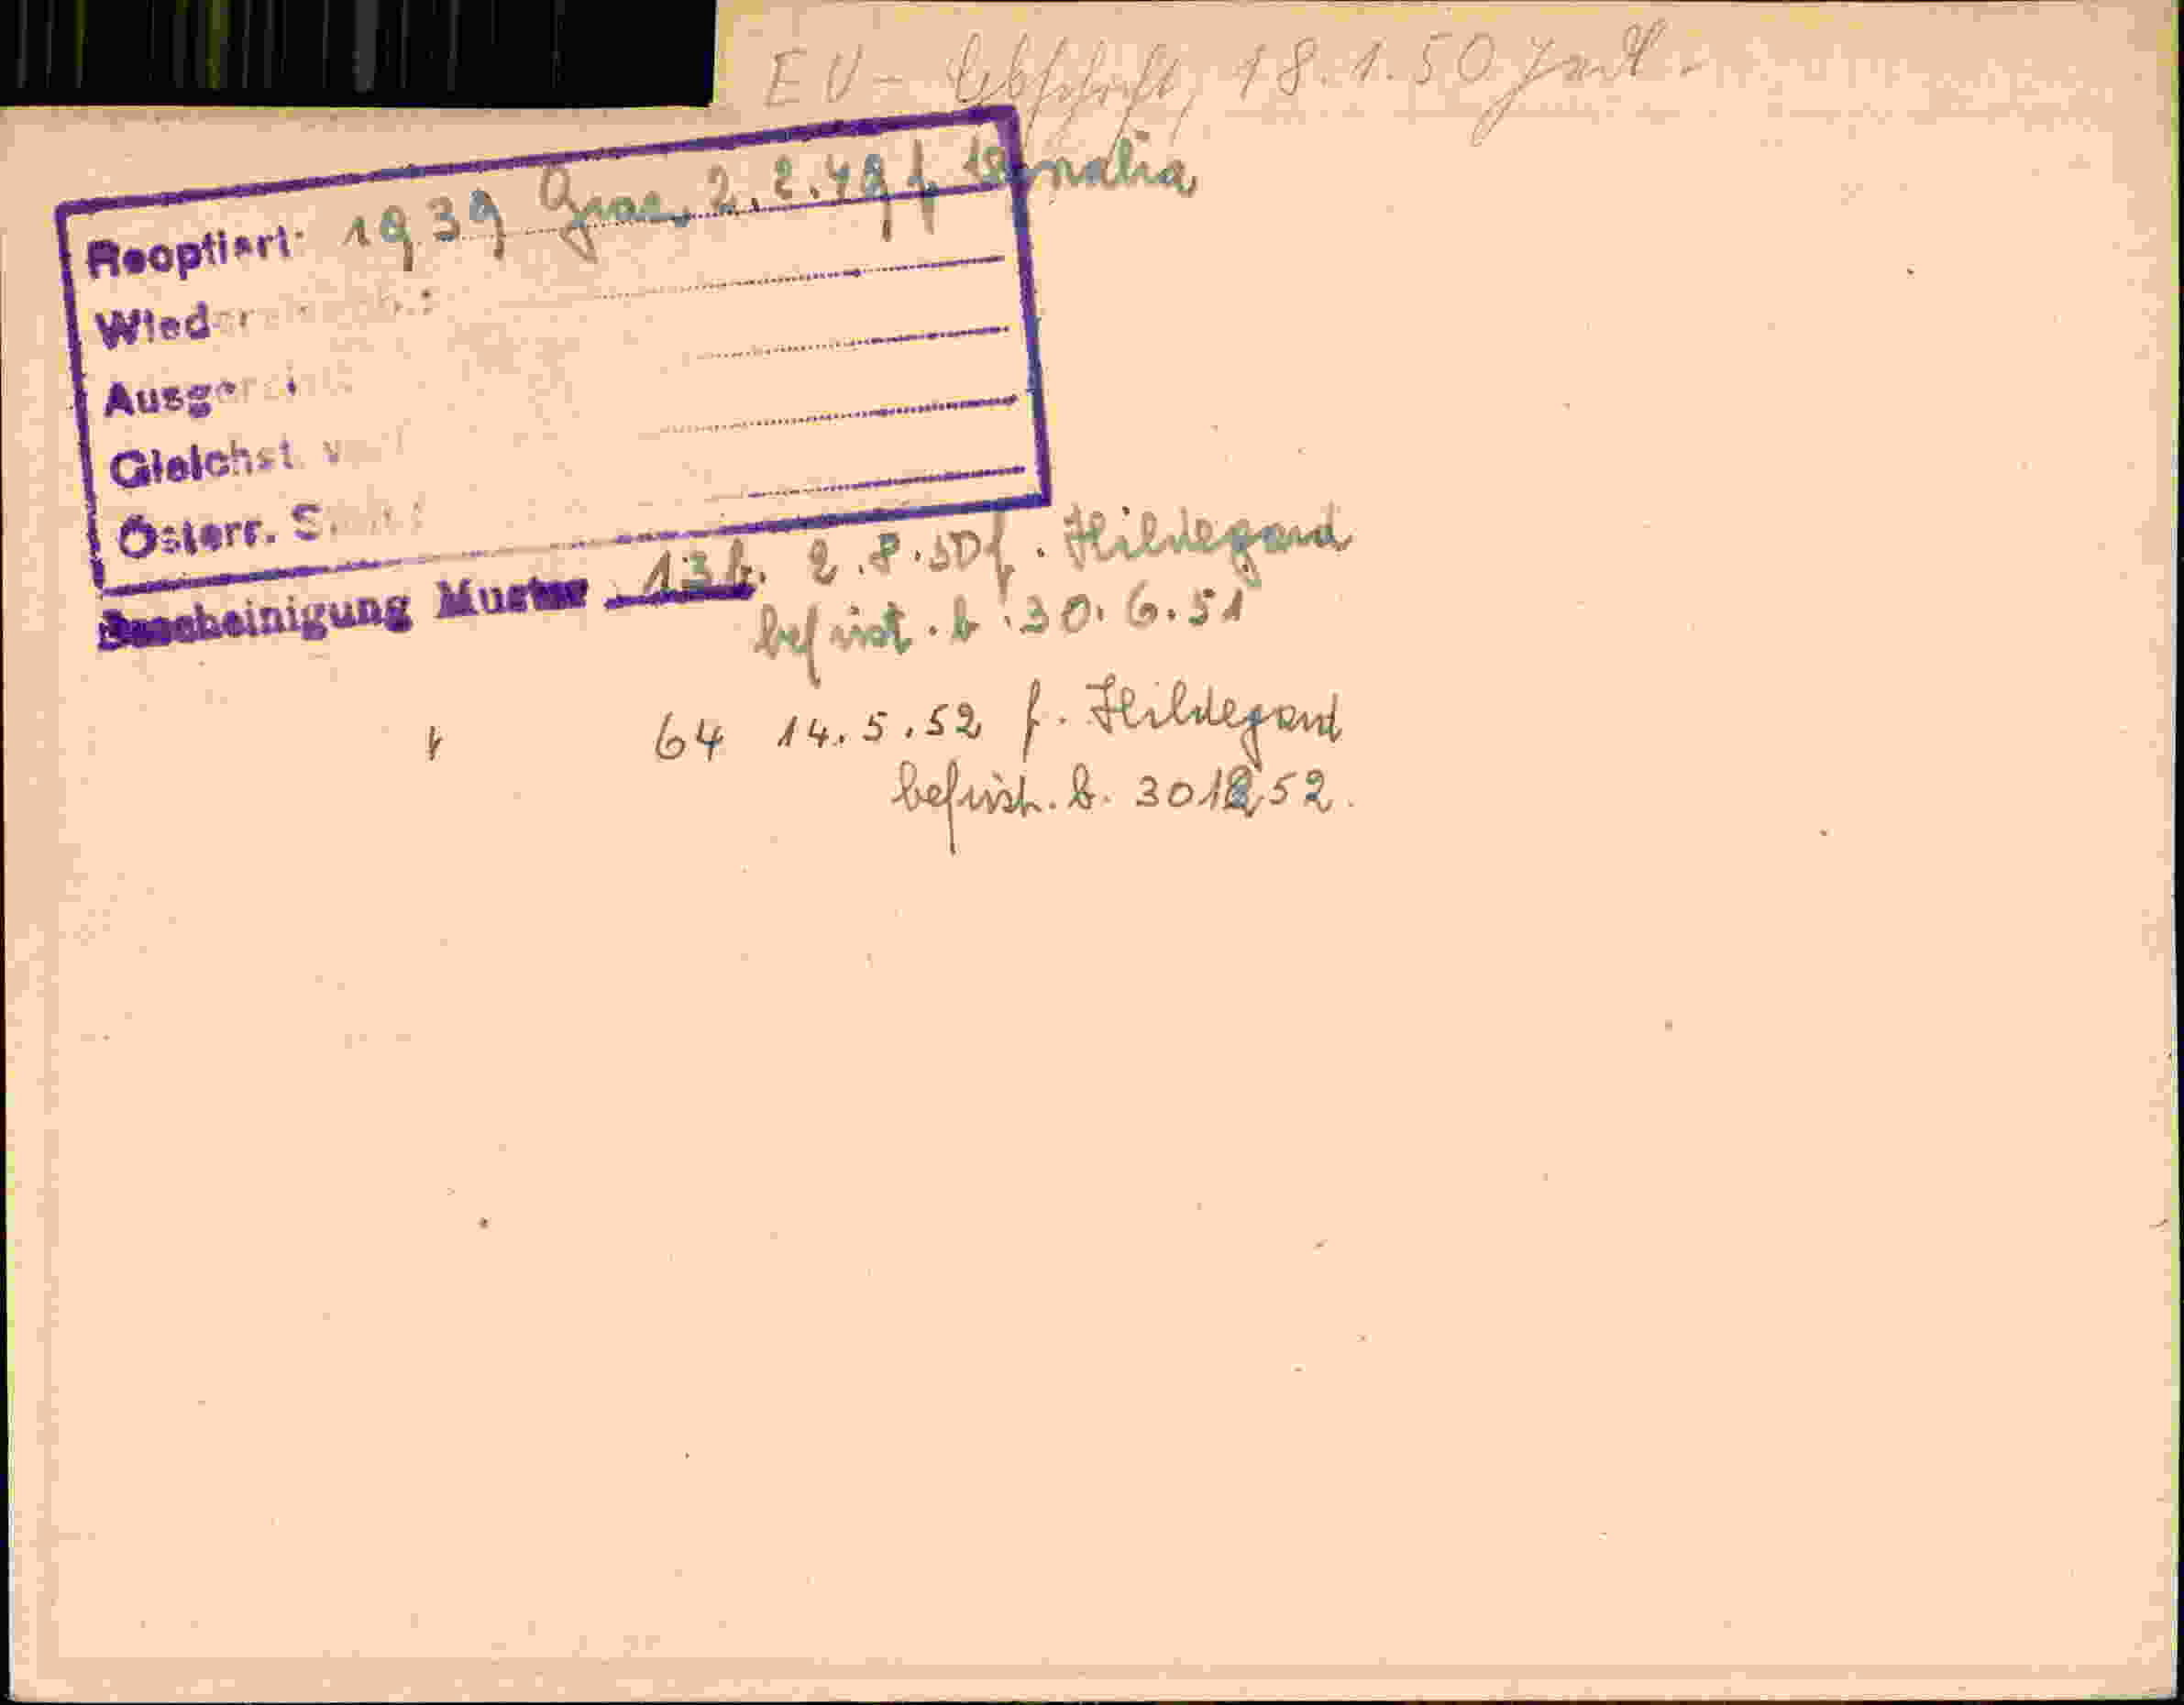 EU - Abschrift, 18.1.50
Reoptiert: 1939 2.2.49 f
Ausger
Gleichst. v
Österr. S
Bescheinigung Muster 13 2.8.50 f. Hildegard
befrist. b. 30.6.51
64 14.5.52 f. Hildegard
befrist. b. 301252.